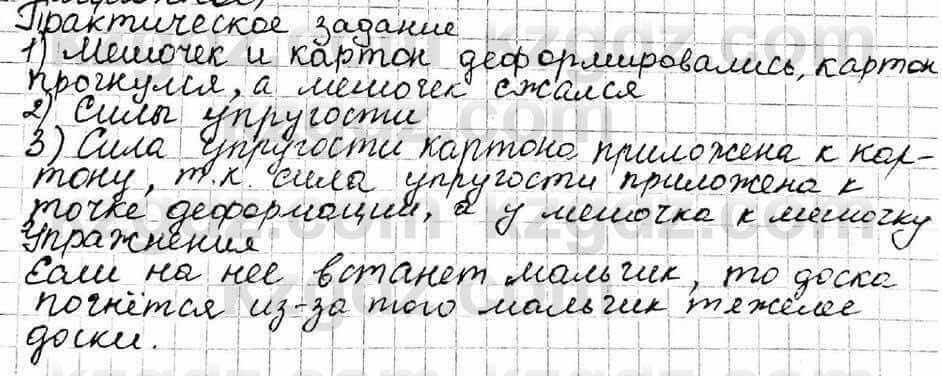 Практическое задание
1) Мешочек и картон деформировались, картон
прогнулся, а мешочек сжался
2) Силы упругости
3) Сила упругости картона приложена к кар-
тону, т.к. сила упругости приложена к
точке деформации, а у мешочка к мешочку
Упражнения
Если на нее встанет мальчик, то доска
погнётся из-за того мальчик тяжелее
доски.